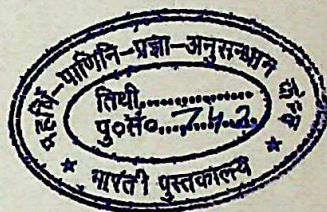 महर्षि-पाणिनि-प्रज्ञा-अनुसन्धान केन्द्र
तिथी..............
पु०सं०...742...
* भारती पुस्तकालय *